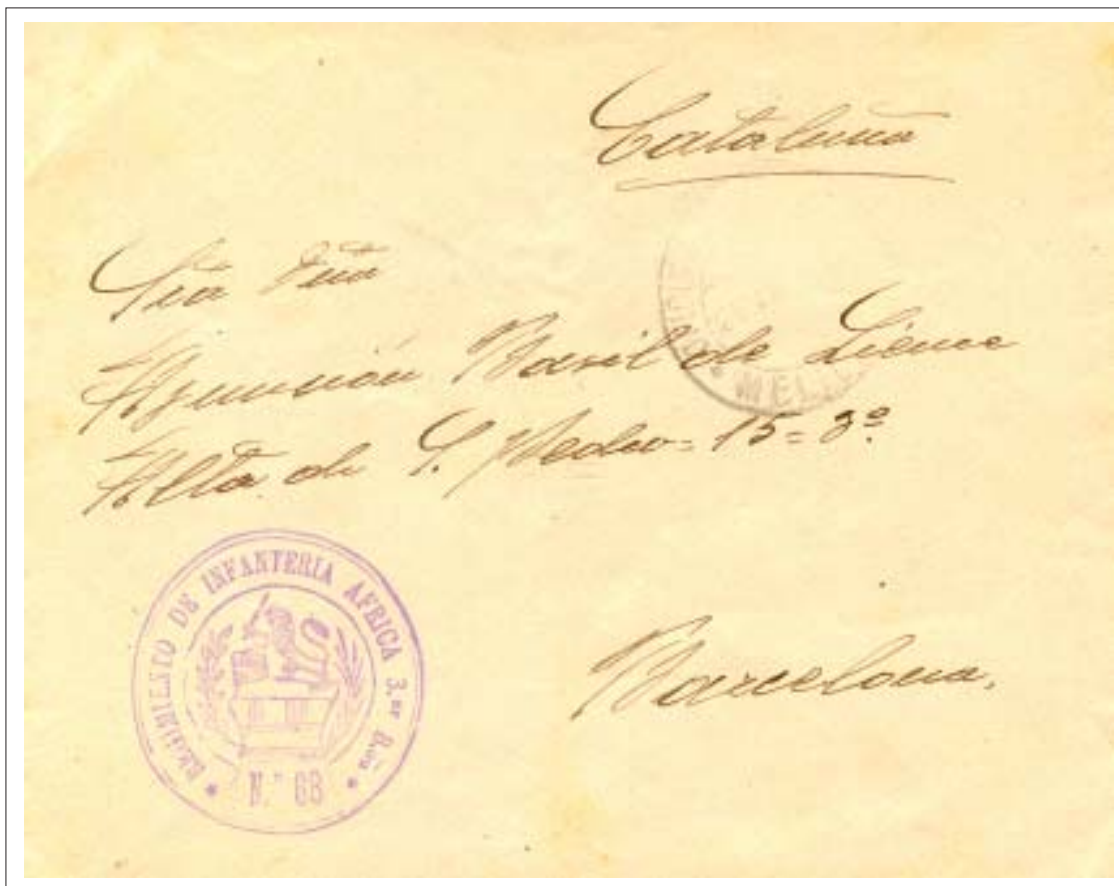 Cataluña
Sra Dña
Asunción Basil de
Alta de S. Pedro = 15 = 3º
Barcelona.
MEL
REGIMIENTO DE INFANTERIA AFRICA 3.er B.on
N.º 68